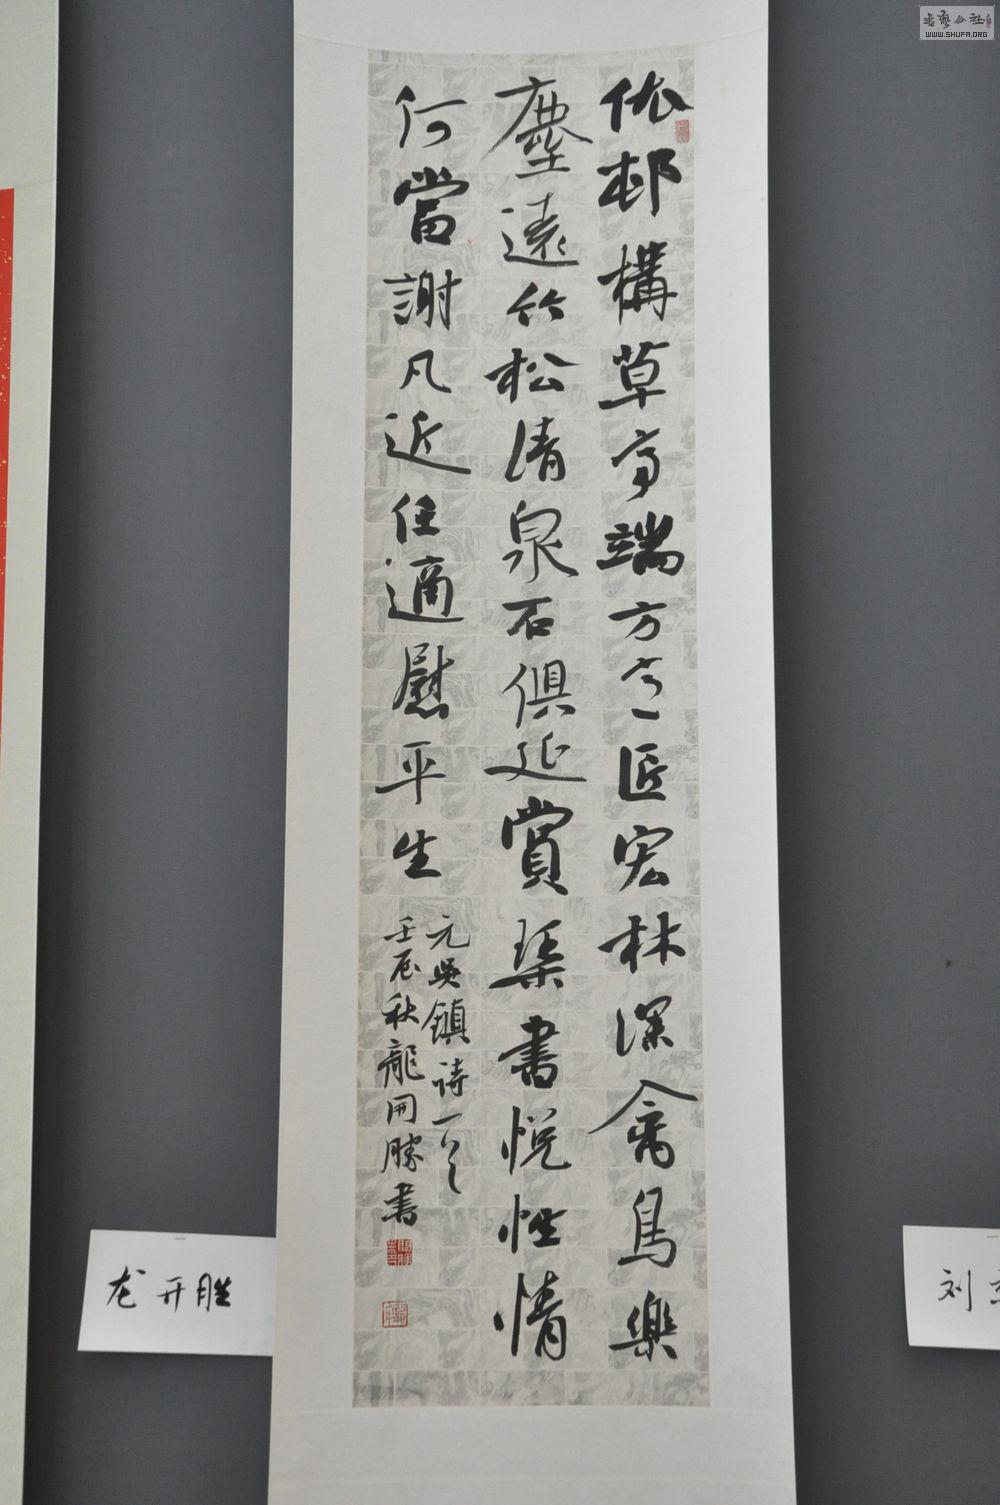 依邨構草亭端方意匠宏林深禽鳥樂
塵遠竹松清泉石俱延賞琹書悦性情
何當謝凡近任適慰平生
元吳鎮詩一首
壬辰秋龍開勝書
龙开胜
刘
WWW.SHUFA.ORG